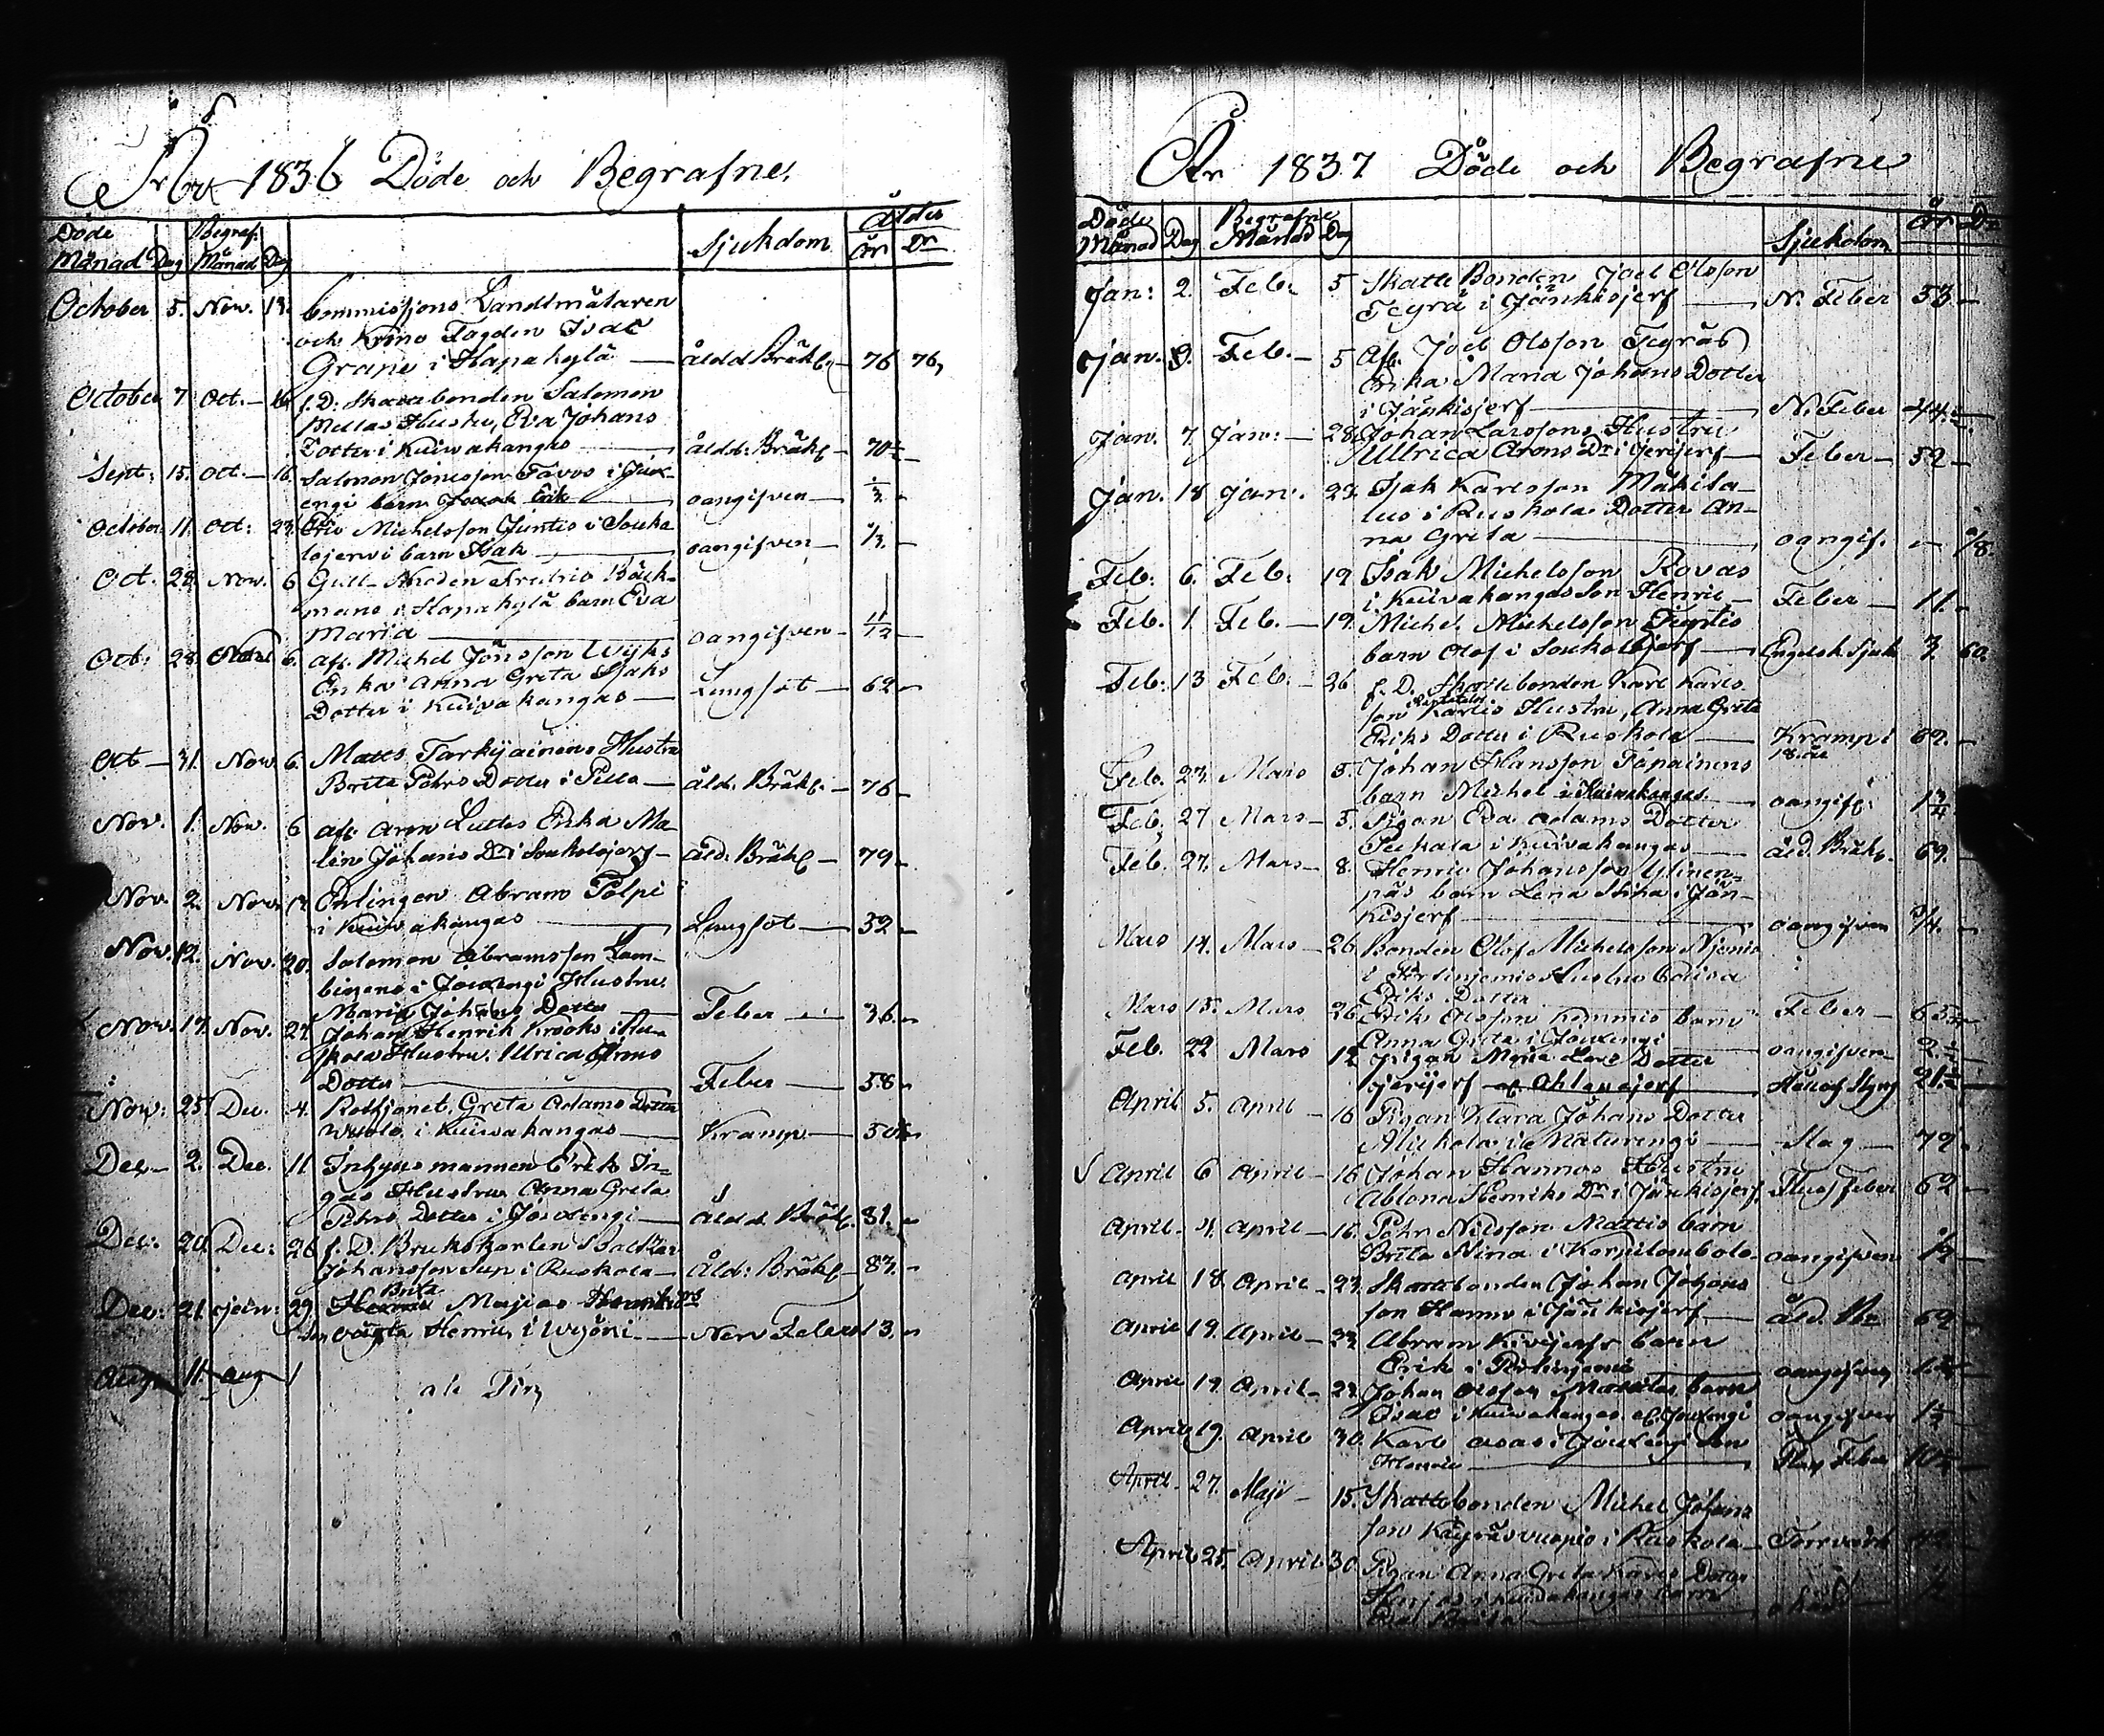 År 1836 Döde och Begrafne.
Döde Begraf: Sjukdom Ålder
Månad Dag Månad Dag År Dr
October 5. Nov. 13. Commissions Landtmätaren
och Krono Fogden Isac
Grape i Hapakylä — åldd. Bräkl. — 76 76,
October 7 Oct. — 16. f. D. Skattebonden Salomon
Mellas Hustru, Eva Johans
Dotter i Kuivakangas — åldd. Bräkl — 70½ —
Sept: 15. Oct — 16. Salomon Jönsson Tavos i Juox-
engi barn Erik — oangifven — —
October 11. Oct: 23. Eric Michelsson Juntis i Souka
lojerwi barn Isak — oangifven — 1/3. —
Oct. 28. Nov. 6 Gull Smeden Fredric Bäck-
mans i Hapakylä barn Eva
Maria — oangifven — 11/12 —
Oct: 28. 6. afl. Michel Jönsson Wyks
Enka Anna Greta Isaks
Dotter i Kuivakangas — Lungsot — 62 —
Oct — 31. Nov. 6. Matts Torkijainens Hustru
Brita Pehrs Dotter i Pello — åld. Bräkl. — 76 —
Nov. 1. Nov. 6 afl. Aron Luttes Enka Ma-
lin Johans Dr i Soukolojerf — åld. Bräkl — 79 —
Nov. 2. Nov. Enlingen Abram Polpi
i Kuivakangas — Lungsot — 32 —
Nov. 12. Nov. 20. Salomon Abramsson Lam-
binens i Jouxengi Hustru
Maria Johans Dotter — Feber — 36. —
Nov. 17. Nov. 27. Johan Henrik Krooks i Ru-
skola Hustru Ulrica Arons
Dotter — Feber — 58 —
Nov: 25. Dec. 4. Rothjonet, Greta Adams Dotter
i Kuivakangas — Kramp — 50½ —
Dec — 2. Dec. 11 Inhyses mannen Erik In-
gas Hustru Anna Greta
Pehrs Dotter i Jouxengi — åldd. Bräkl. 81. —
Dec: 20. Dec: 26 f. D. Brukskarlen Baltzar
Johansson Sup i Ruskola — Åld: Bräkl — 83. —
Brita
Dec: 21. Jan: 29. Majias
son Henric i — Nerv Feber 13. —
Aug. 11. Aug 1
År 1837 Döde och Begrafne
Döde Begrafne Sjukdom År Dr
Månad Dag Månad Dag
Jan: 2. Feb. 5 Skatte Bonden Joel Olsson
Tegrä i Jänkisjerf — N. Feber 53 —
Jan. 9. Feb. — 5 Afl. Joel Olsson Tegräs
Enka Maria Johans Dotter
i Jänkisjerf — N. Feber 44
Jan. 7. Jan: — 28. Johan Larssons Hustru
Ullrica Arons Dr i Jerijerf — Feber — 52 —
Jan. 18 Jan. 22. Isak Karlsson Mäkita-
lus i Ruskola Dotter An-
na Greta — oangif. —
Feb: 6. Feb: 19 Isak Michelsson Rovas
i Kuivakangas Son Henric — Feber — 11. —
Feb. 1 Feb. — 19. Michel Michelsson Juntis
barn Olof i Soukolojerf — Engelsk Sjuk 3. 60.
Feb: 13 Feb. — 26 f. D. Skattebonden Karl Karls-
son Karlis Hustru, Anna Greta
Eriks Dotter i Ruskola — Kramp i 62. —
18. år
Feb. 23. Mars 5. Johan Hansson Tapainens
barn Michel i Kuivakangas — oangifv. 1¾
Feb. 27 Mars — 5. Pigan Eva Adams Dotter
Peckala i Kuivakangas — åld. Bräkl. 69. —
Feb. 27. Mars — 8. Henric Johansson Ylinen-
päs barn Lena Stina i Jän-
kisjerf — oangifven ¾. —
Mars 14. Mars — 26 Bonden Olof Michelsson Niemis
i Pirtiniemis Hustru Carisa
Eriks Dotter — Feber — 65
Mars 15. Mars 26 Eriks Olsson Kemmis barn
Anna Greta i Jouxengi — oangifven
Feb. 22 Mars 12 Pigan Maria Lars Dotter
Jerijerf — Håll och Styng 21½ —
April 5. April — 16 Pigan Klara Johans Dotter
i Naturengi — Slag — 79. —
April 6 April — 16 Johan Hannus Hustru
Ablona Henriks Dr i Jänkisjerf. Fluss Feber 62 —
April. 4. April — 16. Pehr Nilsson Mattis barn
Brita Stina i Korpilombolo. oangifven ½ —
April 18. April — 23. Skattebonden Johan Johans
son Hannu i Jänkisjerf — åld. Br 69 —
April 19. April — 23 Abram Kivijerfs barn
Erik i Pirtiniemi — oangifven
April 19. April — 23 Johan Olsson barn
Isac i Kuivakangas af Jouxengi oangifven
April 19. April 30. Karl Asas i Jouxengi Son
Henric — Fluss Feber 10½ —
April. 27. Maji — 15. Skattebonden Michel Johans
son i Ruskola — Torrvärk
April 25. April 30 Pigan Anna Greta Karls Dotter
i Kuivakangas barn
Eva Brita —